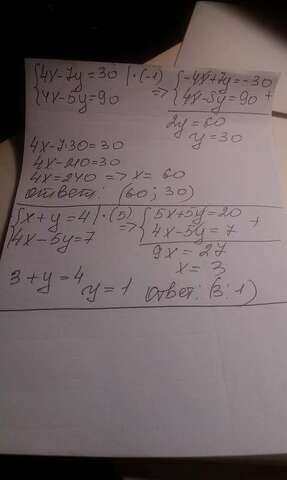 {4x-7y=30 |·(-1) => {-4x+7y=-30
{4x-5y=90 {4x-5y=90 +
2y=60
y=30
4x-7·30=30
4x-210=30
4x=240 => x=60
ответ: (60; 30)
{x+y=4 |·(5) => {5x+5y=20 +
{4x-5y=7 {4x-5y=7
9x=27
x=3
3+y=4
y=1 ответ: (3; 1)